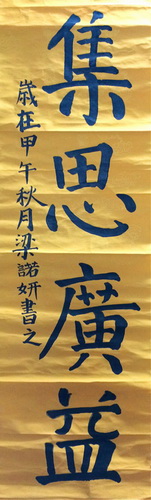 集思廣益
歲在甲午秋月梁諾妍書之